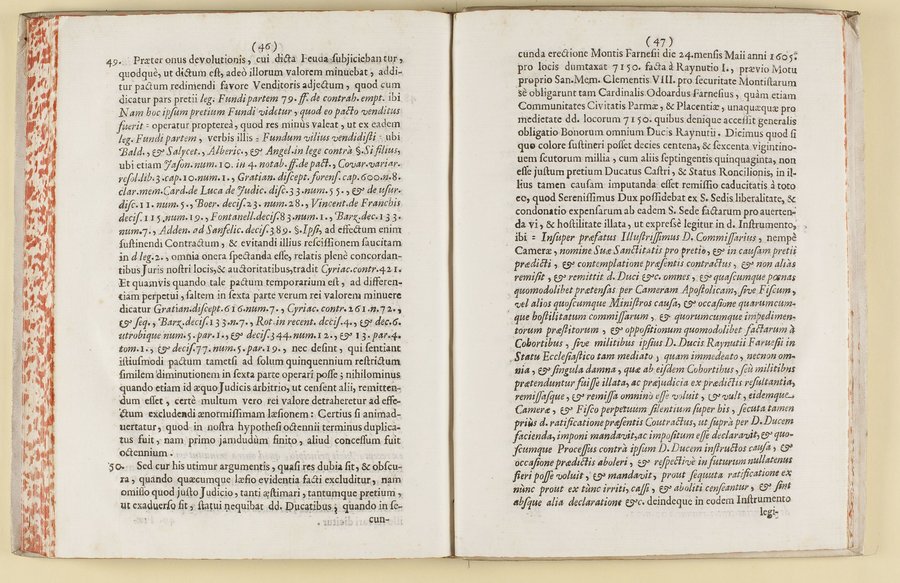 (46)
49. Præter onus devolutionis, cui dicta Feuda subjiciebantur,
quodquè, ut dictum est, adeò illorum valorem minuebat, addi-
tur pactum redimendi favore Venditoris adjectum, quod cum
dicatur pars pretii leg. Fundi partem 79. ff. de contrah. empt. ibi
Nam hoc ipsum pretium Fundi videtur, quod eo pacto venditus
fuerit = operatur proptereà, quod res minùs valeat, ut ex eadem
leg. Fundi partem, verbis illis = Fundum vilius vendidisti = ubi
Bald., & Salycet., Alberic., & Angel. in lege contrà §. Si filius,
ubi etiam Jason. num. 10. in 4. notab. ff. de pact., Covar. variar.
resol. lib. 3. cap. 10. num. 1., Gratian. discept. forens. cap. 600. n. 8.
clar. mem. Card. de Luca de Judic. disc. 33. num. 55., & de usur.
disc. 11. num. 5., Boer. decis. 23. num. 28., Vincent. de Franchis
decis. 115. num. 19., Fontanell. decis. 83. num. 1., Barz. dec. 133.
num. 7., Adden. ad Sanfelic. decis. 389. §. Ipsi, ad effectum enim
sustinendi Contractum, & evitandi illius rescissionem saucitam
in d leg. 2., omnia onera spectanda esse, relatis plenè concordan-
tibus Juris nostri locis, & auctoritatibus, tradit Cyriac. contr. 421.
Et quamvis quando tale pactum temporarium est, ad differen-
tiam perpetui, saltem in sexta parte verum rei valorem minuere
dicatur Gratian. discept. 616. num. 7., Cyriac. contr. 161. n. 72.,
& seq., Barz. decis. 133. n. 7., Rot. in recent. decis. 4., & dec. 6.
utrobique num. 5. par. 1., & decis. 344. num. 12., & 13. par. 4.
tom. 1., & decis. 77. num. 5. par. 19., nec desint, qui sentiant
istiusmodi pactum tametsi ad solum quinquennium restrictum
similem diminutionem in sexta parte operari posse; nihilominus
quando etiam id æquo Judicis arbitrio, ut censent alii, remitten-
dum esset, certè multum vero rei valore detraheretur ad effe-
ctum excludendi ænormissimam læsionem: Certius si animad-
vertatur, quod in nostra hypothesi octennii terminus duplica-
tus fuit, nam primo jamdudùm finito, aliud concessum fuit
octennium.
50. Sed cur his utimur argumentis, quasi res dubia sit, & obscu-
ra, quando quæcumque læsio evidentia facti excluditur, nam
omisso quod justo Judicio, tanti æstimari, tantumque pretium,
ut exaduerso sit, statui nequibat dd. Ducatibus; quando in se-
cun-
(47)
cunda erectione Montis Farnesii die 24. mensis Maii anni 1605.
pro locis dumtaxat 7150. facta à Raynutio I., prævio Motu
proprio San. Mem. Clementis VIII. pro securitate Montistarum
sè obligarunt tam Cardinalis Odoardus Farnesius, quàm etiam
Communitates Civitatis Parmæ, & Placentiæ, unaquæquæ pro
medietate dd. locorum 7150. quibus denique accessit generalis
obligatio Bonorum omnium Ducis Raynutii. Dicimus quod si
quo colore sustineri posset decies centena, & sexcenta vigintino-
uem scutorum millia, cum aliis septingentis quinquaginta, non
esse justum pretium Ducatus Castri, & Status Roncilionis, in il-
lius tamen causam imputanda esset remissio caducitatis à toto
eo, quod Serenissimus Dux possidebat ex S. Sedis liberalitate, &
condonatio expensarum ab eadem S. Sede factarum pro auerten-
da vi, & hostilitate illata, ut expressè legitur in d. Instrumento,
ibi = Insuper præfatus Illustrissimus D. Commissarius, nempè
Cameræ, nomine Suæ Sanctitatis pro pretio, & in causam pretii
prædicti, & contemplatione præsentis contractus, & non aliàs
remisit, & remittit d. Duci &c. omnes, & quascumque pœnas
quomodolibet prætensas per Cameram Apostolicam, sive Fiscum,
vel alios quoscumque Ministros causa, & occasione quarumcum-
que hostilitatum commissarum, & quorumcumque impedimen-
torum præstitorum, & oppositionum quomodolibet factarum à
Cohortibus, sive militibus ipsius D. Ducis Raynutii Faruesii in
Statu Ecclesiastico tam mediato, quam immedeato, necnon om-
nia, & singula damna, quæ ab eisdem Cohortibus, seù militibus
prætenduntur fuisse illata, ac præjudicia ex prædictis resultantia,
remissasque, & remissa omninò esse voluit, & vult, eidemque
Cameræ, & Fisco perpetuum silentium super his, secuta tamen
priùs d. ratificatione præsentis Coutractus, ut suprà per D. Ducem
facienda, imponi mandavit, ac impositum esse declaravit, & quo-
scumque Processus contrà ipsum D. Ducem instructos causa, &
occasione prædictis aboleri, & respectivè in futurum nullatenus
fieri posse voluit, & mandavit, prout sequuta ratificatione ex
nùnc prout ex tùnc irriti, cassi, & aboliti censeantur, & sint
absque alia declaratione &c. deindeque in eodem Instrumento
legi-